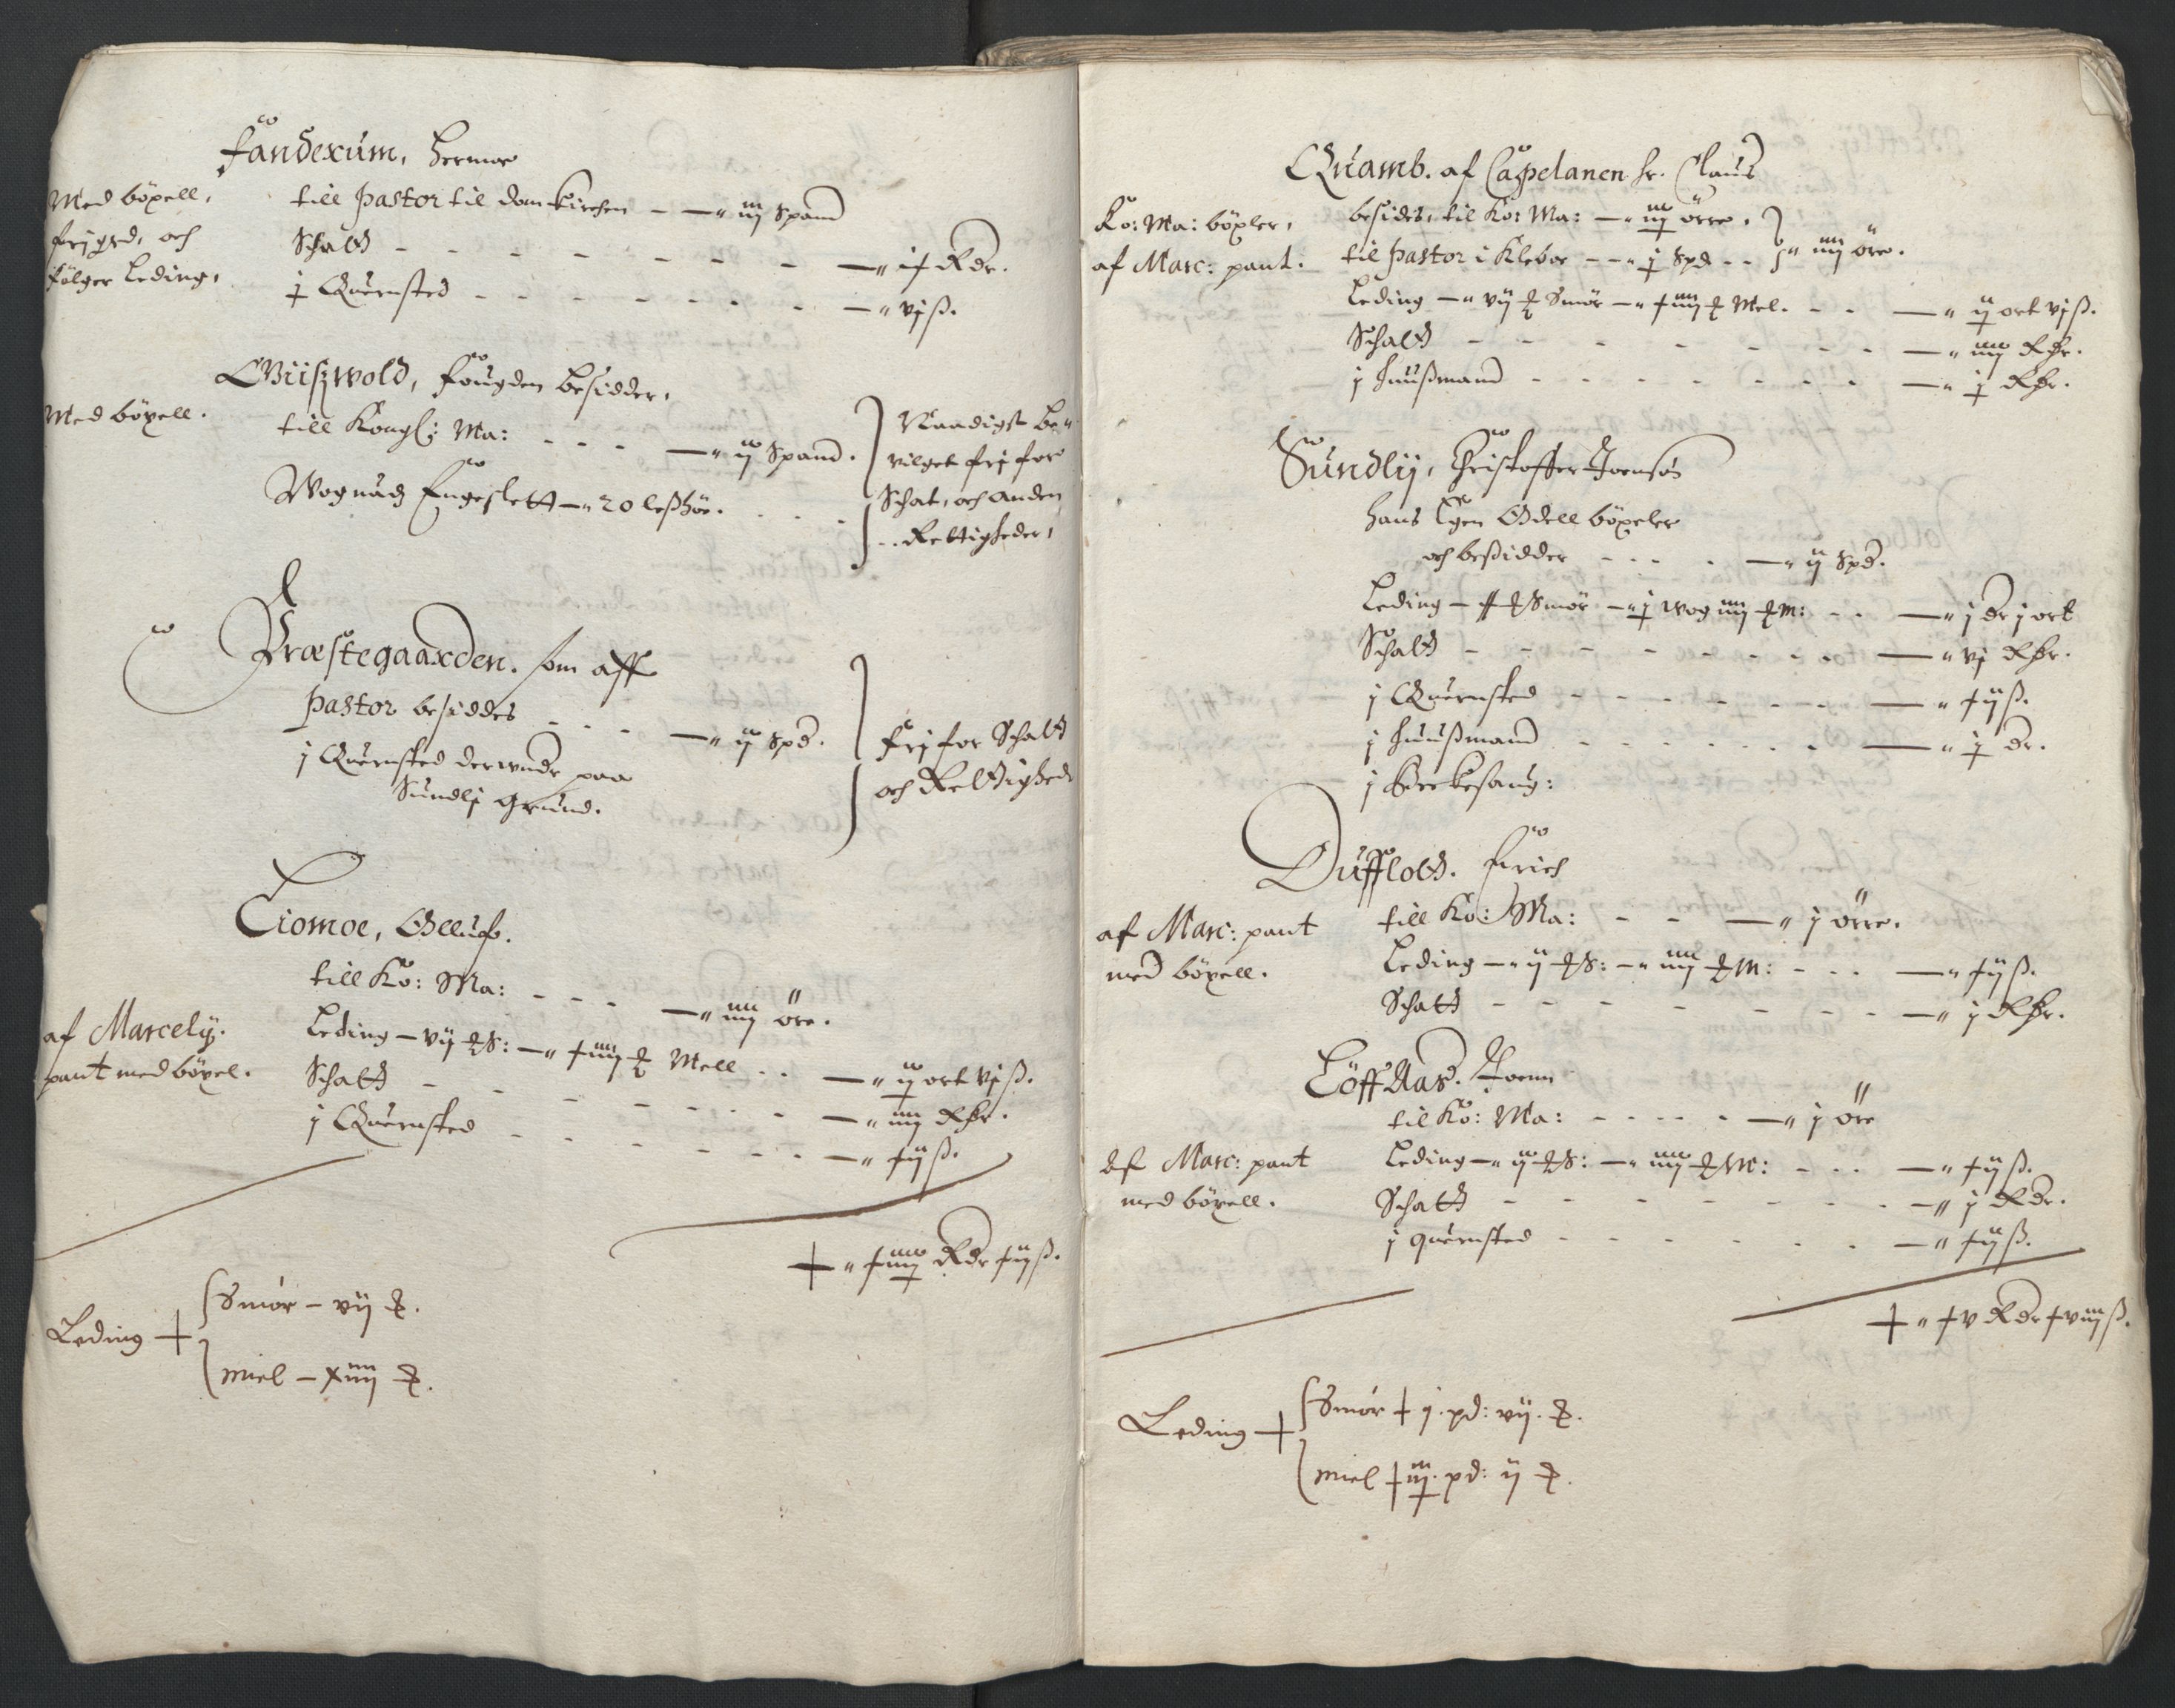 Tanderum, Hermoe
Med böxell,
frigrd, och
følger Leding,
till Pastor til domkirchen - - " iij Spand
Schatt - - - - - - " ix Rdr.
½ Querensted - - - - - - " vj ß.
Griiswold, fougden besidder,
Med böxell.
till Kongl: Ma: - - - " ij Spand.
Wognudz Engeslett - " 20 lesshöe.
Naadigst be-
vilget frj for
Schat, och anden
Rettigheder,
Præstegaarden. som aff
Pastor besiddes - - - - " ij Spd.
j Querensted derwnder paa
Sundlj Grund.
frj for Schatt
och Rettighed
Tiomoe, Olluf.
till Ko: Ma: - - - - " iiij öre.
af Marcelij.
pant med böxel.
Leding - vij ℔ S: - " xiiij ℔ Mell - - - " ij ort vj ß.
Schatt - - - - - - " iiij Rdr.
j Querensted - - - - - - " xij ß.
" xiiij Rdr xij ß.
Leding
Smör - vij ℔.
miel - xiiij ℔.
Quamb. af Capelanen hr. Claus
Ko: Ma: böxler,
af Marc: pant.
besides, til Ko: Ma: - " iij örre,
til Pastor i Kleboe - - " j Spd - -
" iiij öre.
Leding - " vij ℔ Smör - " xiiij ℔ Mel. - - - " ij ort vj ß.
Schatt - - - - - - " iiij Rdr.
j huussmand - - - - - - " ½ Rdr.
Sundlij, Christoffer Joensön
hans Egen Odell böxeler
och bessidder - - - - " ij Spd.
Leding - x ℔ Smör - " j wog iiij ℔ M: - - - " j dr j ort
Schatt - - - - - - " vj Rdr.
j Querensted - - - - - - " xij ß.
j huussmand - - - - - - " ½ dr.
j Beckesaug:
Dufflott. Erich
af Marc: pant
med böxell.
till Ko: Ma: - - - " j örre.
Leding - " ij ℔ S: - " iiij ℔ M: - - - " xij ß.
Schatt - - - - - - " j Rdr.
Löffaas. Joenn
til Ko: Ma: - - - - " j öre
af Marc: pant
med böxell.
Leding - " ij ℔ S: - " iiij ℔ M: - - - " xij ß.
Schatt - - - - - - " j Rdr.
j querensted - - - - - - " xij ß.
" xv Rdr xviij ß.
Leding
Smör j. pd: vij. ℔.
miel iij. pd: ij ℔.